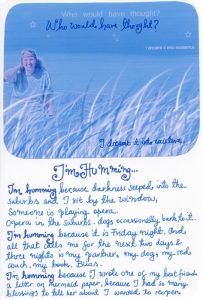 Who would have thought?
Who would have thought?
I dreamt it into existence
I dreamt it into existence.
I'm Humming...
I'm humming because darkness seeped into the
suburbs and I sit by the window,
Someone is playing opera.
Opera in the suburbs. dogs occasionally bark to it.
I'm humming because it is Friday night. And
all that calls me for the next two days &
three nights is my partner, my dog, my red
couch, my book, Bliss.
I'm humming because I wrote one of my best friends
a letter on Mermaid paper, because I had so many
blessings to tell her about I wanted to respond